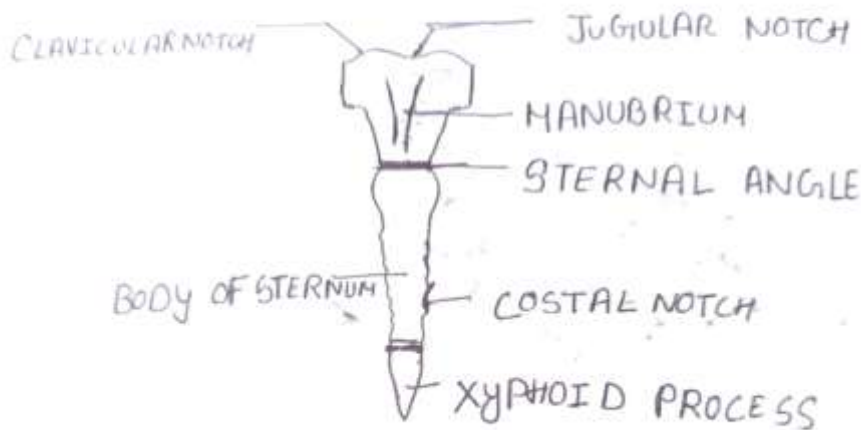 CLAVICULAR NOTCH
JUGULAR NOTCH
MANUBRIUM
STERNAL ANGLE
BODY OF STERNUM
COSTAL NOTCH
XYPHOID PROCESS